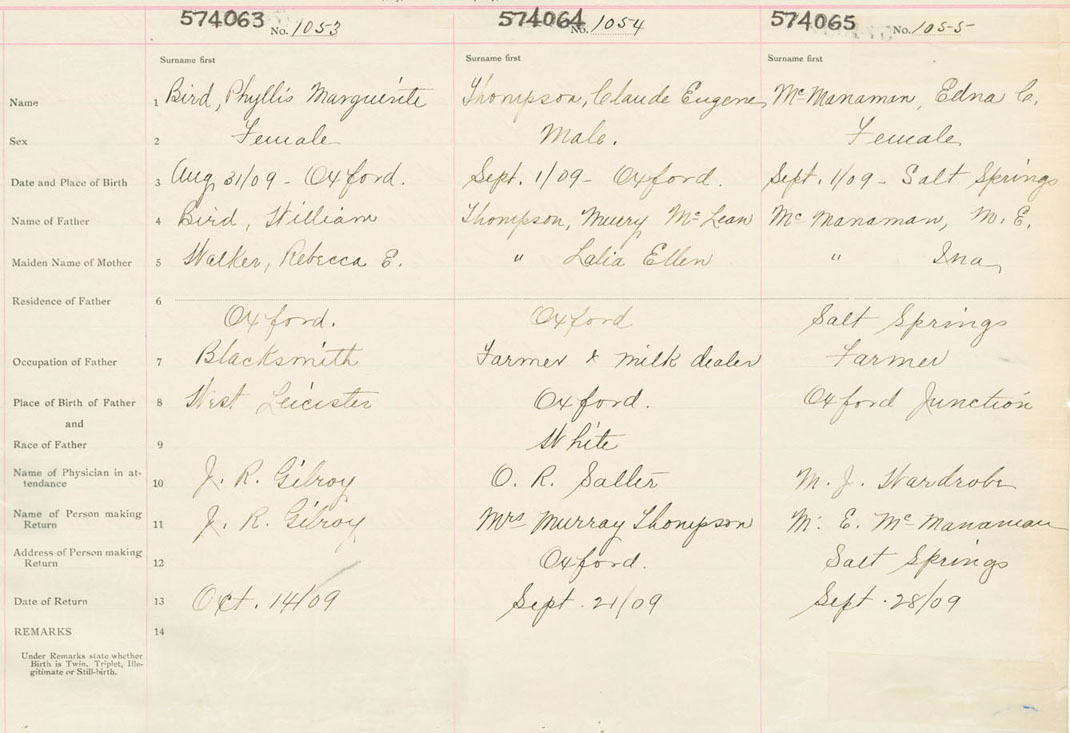 574063 No. 1053 574064 No. 1054 574065 No. 1055
Surname first Surname first Surname first
Name 1 Bird, Phyllis Marguerite Thompson, Claude Eugene Mc Manaman, Edna C.
Sex 2 Female Male. Female
Date and Place of Birth 3 Aug 31/09 - Oxford. Sept. 1/09 - Oxford. Sept. 1/09 - Salt Springs
Name of Father 4 Bird, William Thompson, Murry Mc Lean Mc Manaman, M. E.
Maiden Name of Mother 5 Walker, Rebecca E. " Lalia Ellen " Ina
Residence of Father 6
Oxford. Oxford Salt Springs
Occupation of Father 7 Blacksmith Farmer & milk dealer Farmer
Place of Birth of Father 8 West Leicister Oxford. Oxford Junction
and
Race of Father 9 White
Name of Physician in at-
tendance 10 J. R. Gilroy O. R. Salter M. J. Wardrobe
Name of Person making
Return 11 J. R. Gilroy Mrs Murray Thompson M. E. Mc Manaman
Address of Person making
Return 12 Oxford. Salt Springs
Date of Return 13 Oct. 14/09 Sept. 21/09 Sept. 28/09
REMARKS 14
Under Remarks state whether
Birth is Twin, Triplet, Ille-
gitimate or Still-birth.